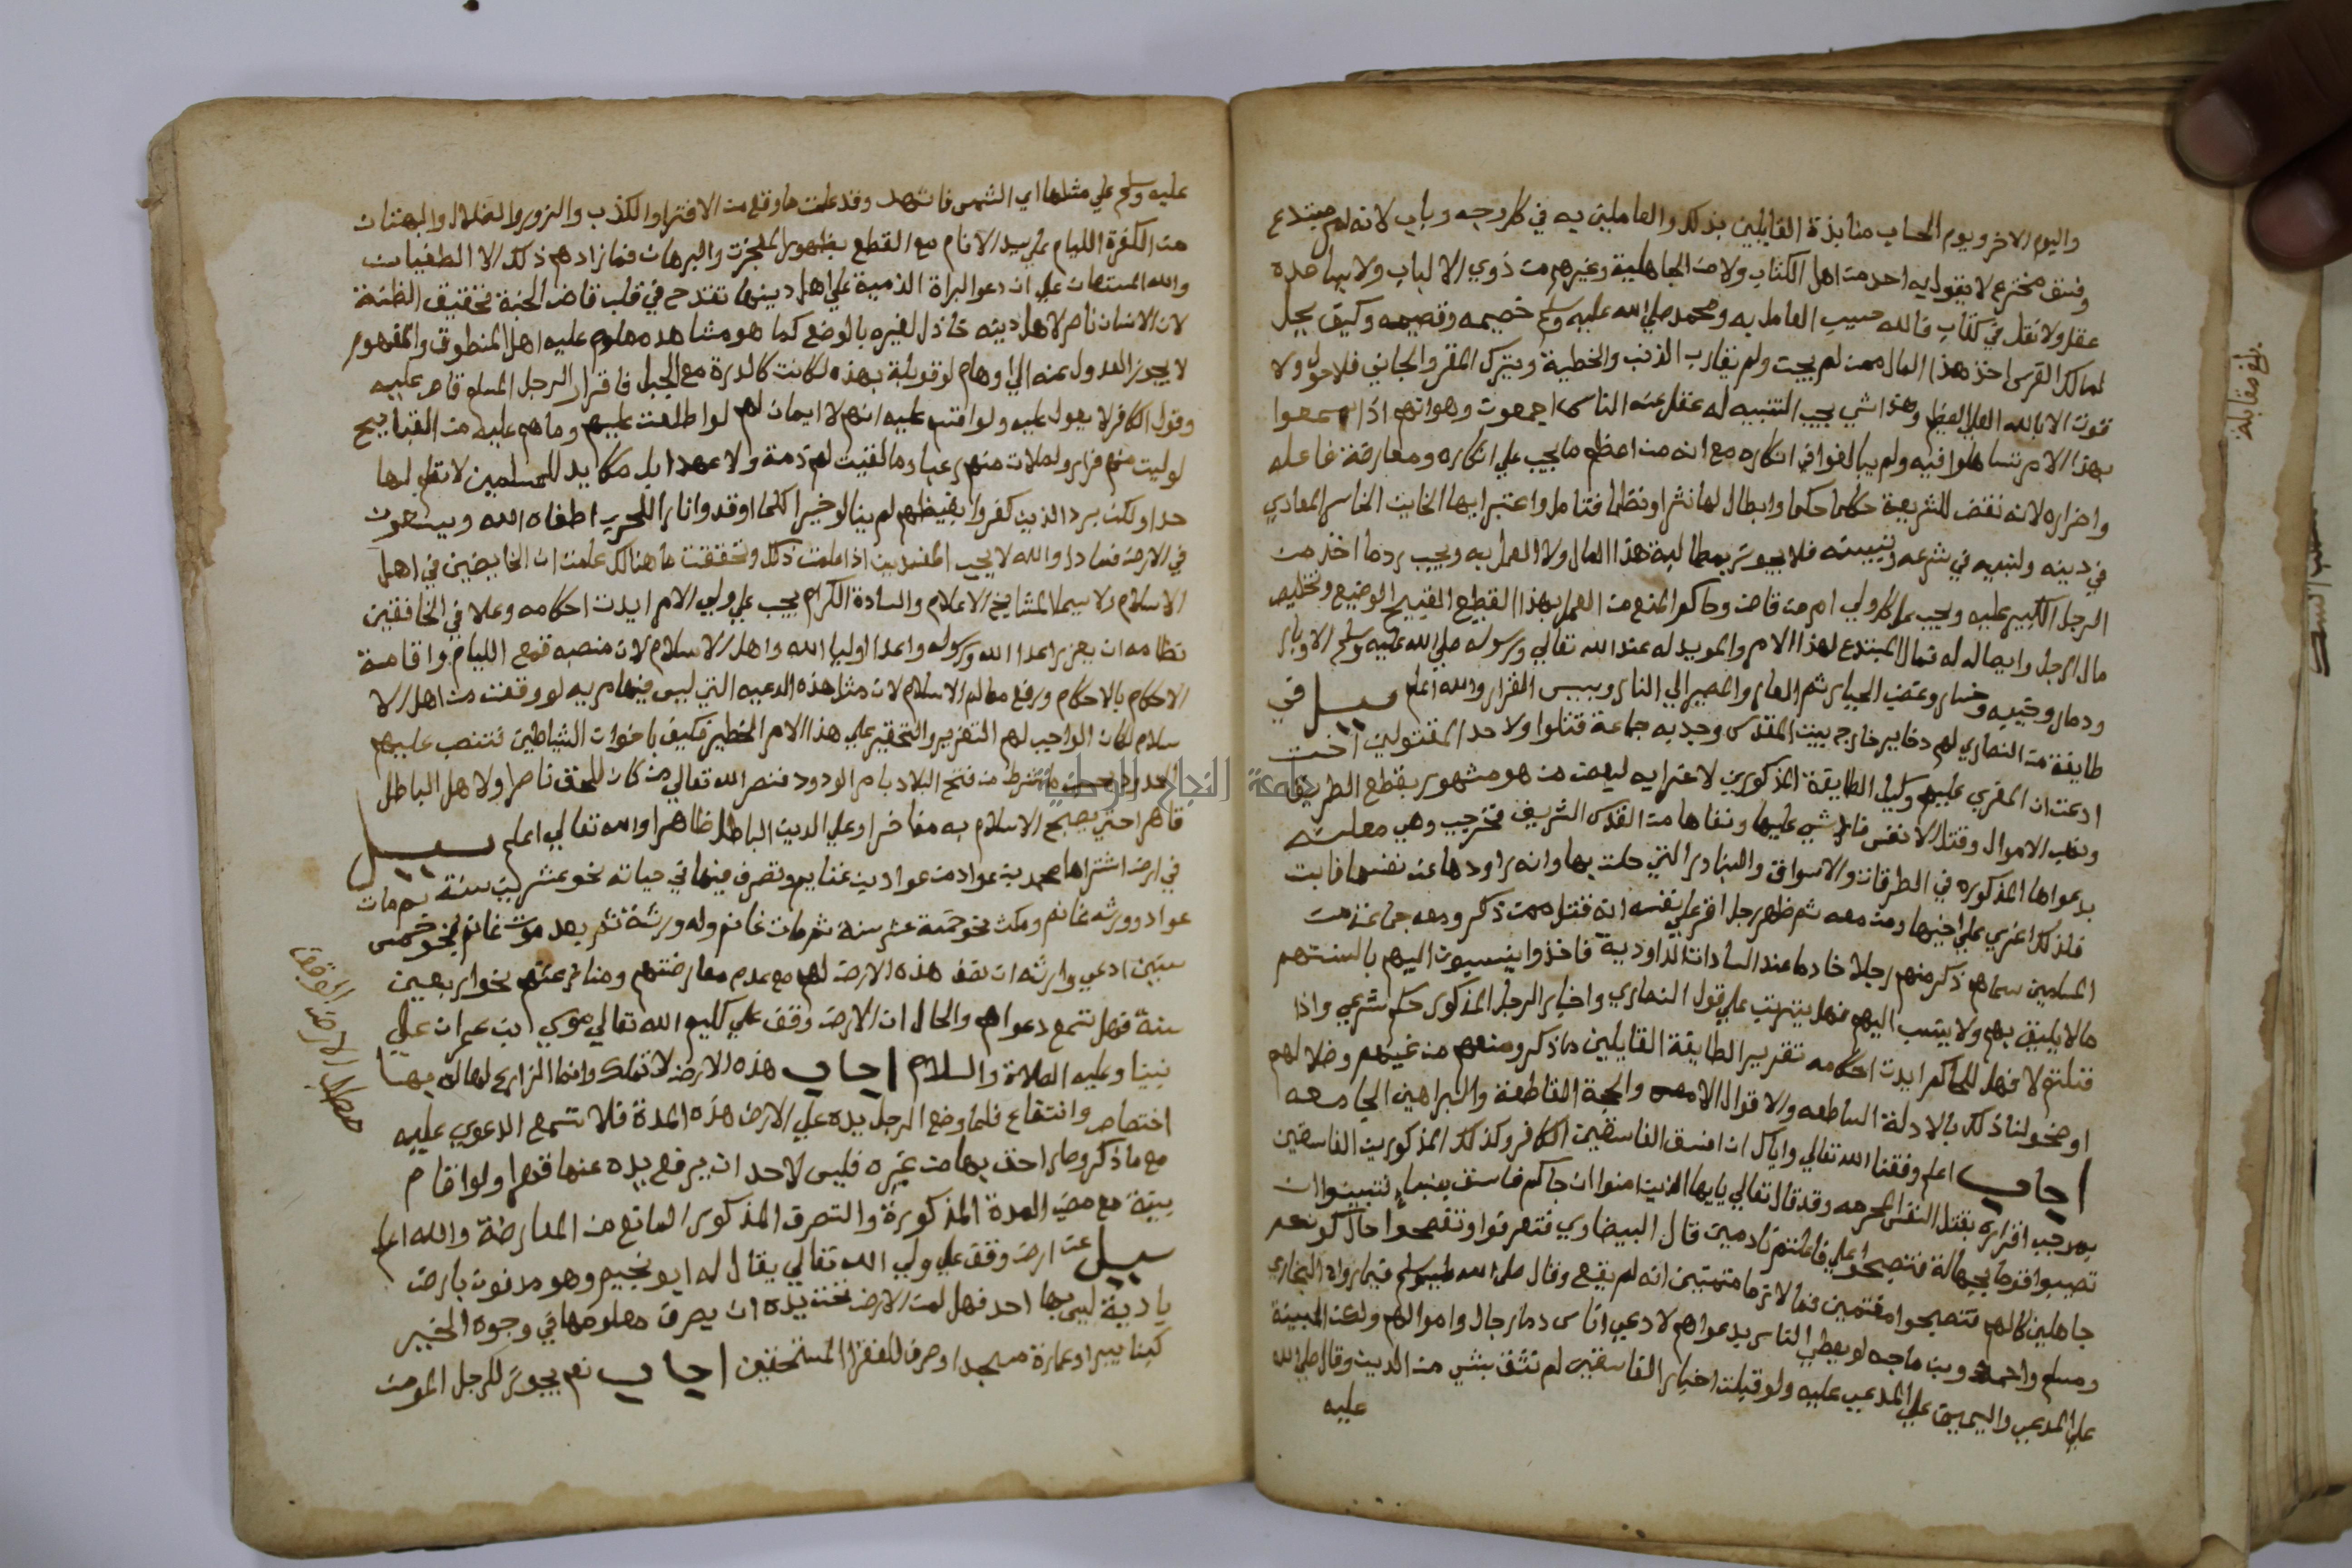 واليوم الاخر ويوم الحساب منابذة القايلين بذلك والعاملين به في كل وجه وباب لانه امر مبتدع
وفسق مخترع لا يقول به احد من اهل الكتاب ولا من الجاهلية وغيرهم من ذوي الالباب ولا يساعده
عقل ولا نقل في كتاب فالله حسيب العامل به ومحمد صلي الله عليه وسلم خصيمه وقصيمه وكيف يحل
لمالك القرى اخذ هذا المال ممن لم يجن ولم يقارب الذنب والخطية ويترك المقر والجاني فلا حول ولا
قوت الا بالله العلي العظيم وهذا شي يجب التنبيه له غفل عنه الناس اجمعون وهو انهم اذا سمعوا
بهذا الامر تساهلوا فيه ولم يبالغوا في انكاره مع انه من اعظم ما يجب علي انكاره ومعارضة فاعله
واضراره لانه نقض للشريعة حكما حكما وابطال لها نثرا ونظما فتامل واعتبر ايها الخاين الخاسر المعادي
في دينه ولنبيه في شرعه وتبيينه فلا يجوز مطالبة هذا المال ولا العمل به ويجب رد ما اخذ من
الرجل الكبير عليه ويجب على كل ولي امر من قاض وحاكم المنع من العمل بهذا القطيع القبيح الوضيع وتخليص
مال الرجل وايصاله له فمال المبتدع لهذا الامر والمويد له عند الله تعالي ورسوله صلي الله عليه وسلم الا وبال
ودمار وخيبه وخسار وغضب الجبار ثم العار والمصير الي النار وبيس القرار والله اعلم سيل في
طايفة من النصاري لهم دخاير خارج بيت المقدس وجد به جماعة قتلوا ولاحد المقتولين اخت
ادعت ان المغري عليهم وكيل الطايفة المذكورين لاغرايه لبعض من هو مشهور بقطع الطريق
ونهب الاموال وقتل الانفس فلم يثبت عليها ونفاها من القدس الشريف فخرجت وهي معلنة
بدعواها المذكوره في الطرقات والاسواق والبنادر التي حلت بها وانه راودها عن نفسها فابت
فلذلك اغري علي اخيها ومن معه ثم ظهر رجل اقر علي نفسه انه قتل ممن ذكر ومعه جماعة من
المسلمين سماهم ذكر منهم رجلا خادما عند السادات الداودية فاخذوا ينسبون اليهم بالسنتهم
مالا يليق بهم ولا ينسب اليهم فهل يترتب علي قول النصاري واخبار الرجل المذكور حكم شرعي واذا
قلتم لا فهل للحاكم ايدت احكامه تعزير الطايفة القايلين ماذكر ومنعهم من غيهم وضلالهم
اوضحوا لنا ذلك بالادلة الساطعه والاقوال اللامعه والحجة القاطعة والبراهين الجامعه
اجاب اعلم وفقنا الله تعالي واياك ان افسق الفاسقين الكافر وكذلك المذكورين الفاسقين
بموجب اقراره بقتل النفس المحرمه وقد قال تعالي يايها الذين امنوا ان جاكم فاسق بنبا فتبينوا ان
تصيبوا قوما بجهالة فتصبحوا علي ما فعلتم نادمين قال البيضاوي فتعرفوا وتفصحوا حال كونهم
جاهلين كالهم فتصبحوا مغتمين غما لازما متمنين انه لم يقع وقال صلي الله عليه وسلم فيما رواه البخاري
ومسلم واحمد وبن ماجه لو يعطي الناس بدعواهم لادعي اناس دما رجال واموالهم ولكن البينة
علي المدعي واليمين علي المدعي عليه ولو قبلت اخبار الفاسقين لم تتق بشي من الدين وقال صلي الله
عليه
بلغ مقابلة
عليه وسلم علي مثلها اي الشمس فاشهد وقد علمت ما وقع من الافترا والكذب والزور والضلال والبهتان
من الكفرة الليام علي سيد الانام مع القطع بظهور المعجزت والبرهان فما زادهم ذلك الا الطغيان
والله المستعان علي ان دعوا المراة الذمية علي اهل دينها تقدح في قلب قاض الجنة تحقيق الظنة
لان الانسان ناصر لاهل دينه خاذل لغيره بالوضع كما هو مشاهد معلوم عليه اهل المنطوق والمفهوم
لا يجوز العدول عنه الي اوهام لو قوبلت بهذه لكانت كالذرة مع الجبل فاقرار الرجل المسلم قاصر عليه
وقول الكافر لا يعول عليه ولو اقسم عليه انهم لا ايمان لهم لو اطلعت عليهم وماهم عليه من القبايح
لوليت منهم فرارا ولملات منهم رعبا وما لقيت لهم ذمة ولا عهدا بل مكايد للمسلمين لا تعلم لها
حدا ولكن يرد الذين كفروا بغيظهم لم ينالوا خيرا كلما اوقدوا نارا للحرب اطفاه الله ويسعون
في الارض فسادا والله لا يحب المفسدين اذا علمت ذلك وتحققت ما هنالك علمت ان الخايضين في اهل
الاسلام لاسيما المشايخ الاعلام والسادة الكرام يجب علي ولي الامر ايدت احكامه وعلا في الخافقين
نظامه ان يعزر اعدا الله ورسوله واعدا اوليا الله واهل الاسلام لان منصبه قمع الليام واقامة
الاحكام بالاحكام ورفع معالم الاسلام لان مثل هذه الدعيه التي ليس فيها مريه لو وقعت من اهل الا
سلام لكان الواجب لهم التعزير والتحقير علي هذا الامر الخطير فكيف باخوان الشياطين فتنصب عليهم
الحدود بحسب ما شرط من فتح البلاد بامر الودود فنصر الله تعالي من كان للحق ناصرا ولاهل الباطل
قاهرا حتي يصبح الاسلام به مفاخرا وعلي الدين الباطل ظاهرا والله تعالي اعلم سيل
في ارض اشتراها محمد بن عواد من عواد بن غنايم وتصرف فيها في حياته نحو عشرين سنة ثم مات
عواد وورثه غانم ومكث نحو خمسة عشر سنة ثم مات غانم وله ورثة ثم بعد موت غانم بنحو خمس
سنين ادعي وارثه ان نصف هذه الارض لهم مع عدم معارضتهم ومنازعتهم نحوا ربعين
سنة فهل تسمع دعواهم والحال ان الارض وقف علي كليم الله تعالي موسي ابن عمران علي
نبينا وعليه الصلاة والسلام اجاب هذه الارض لا تملك وانما الزارع لها له بها
اختصاص وانتفاع فلما وضع الرجل يده علي الارض هذه المدة فلا تسمع الدعوي عليه
مع ماذكر وصار احق بها من غيره فليس لاحد ان يرفع يده عنها قهرا ولو اقام
بينة مع مضي المدة المذكورة والتصرف المذكور المانع من المعارضة والله اعلم
سيل عن ارض وقف علي ولي الله تعالي يقال له ابو نجيم وهو مدفون بارض
بادية ليس بها احد فهل لمن الارض تحت يده ان يصرف معلومها في وجوه الخير
كبنا بير او عمارة مسجد او صرف للفقرا المستحقين اجاب نعم يجوز للرجل المومن
مطلب الارض الوقف
جامعة النجاح الوطنية